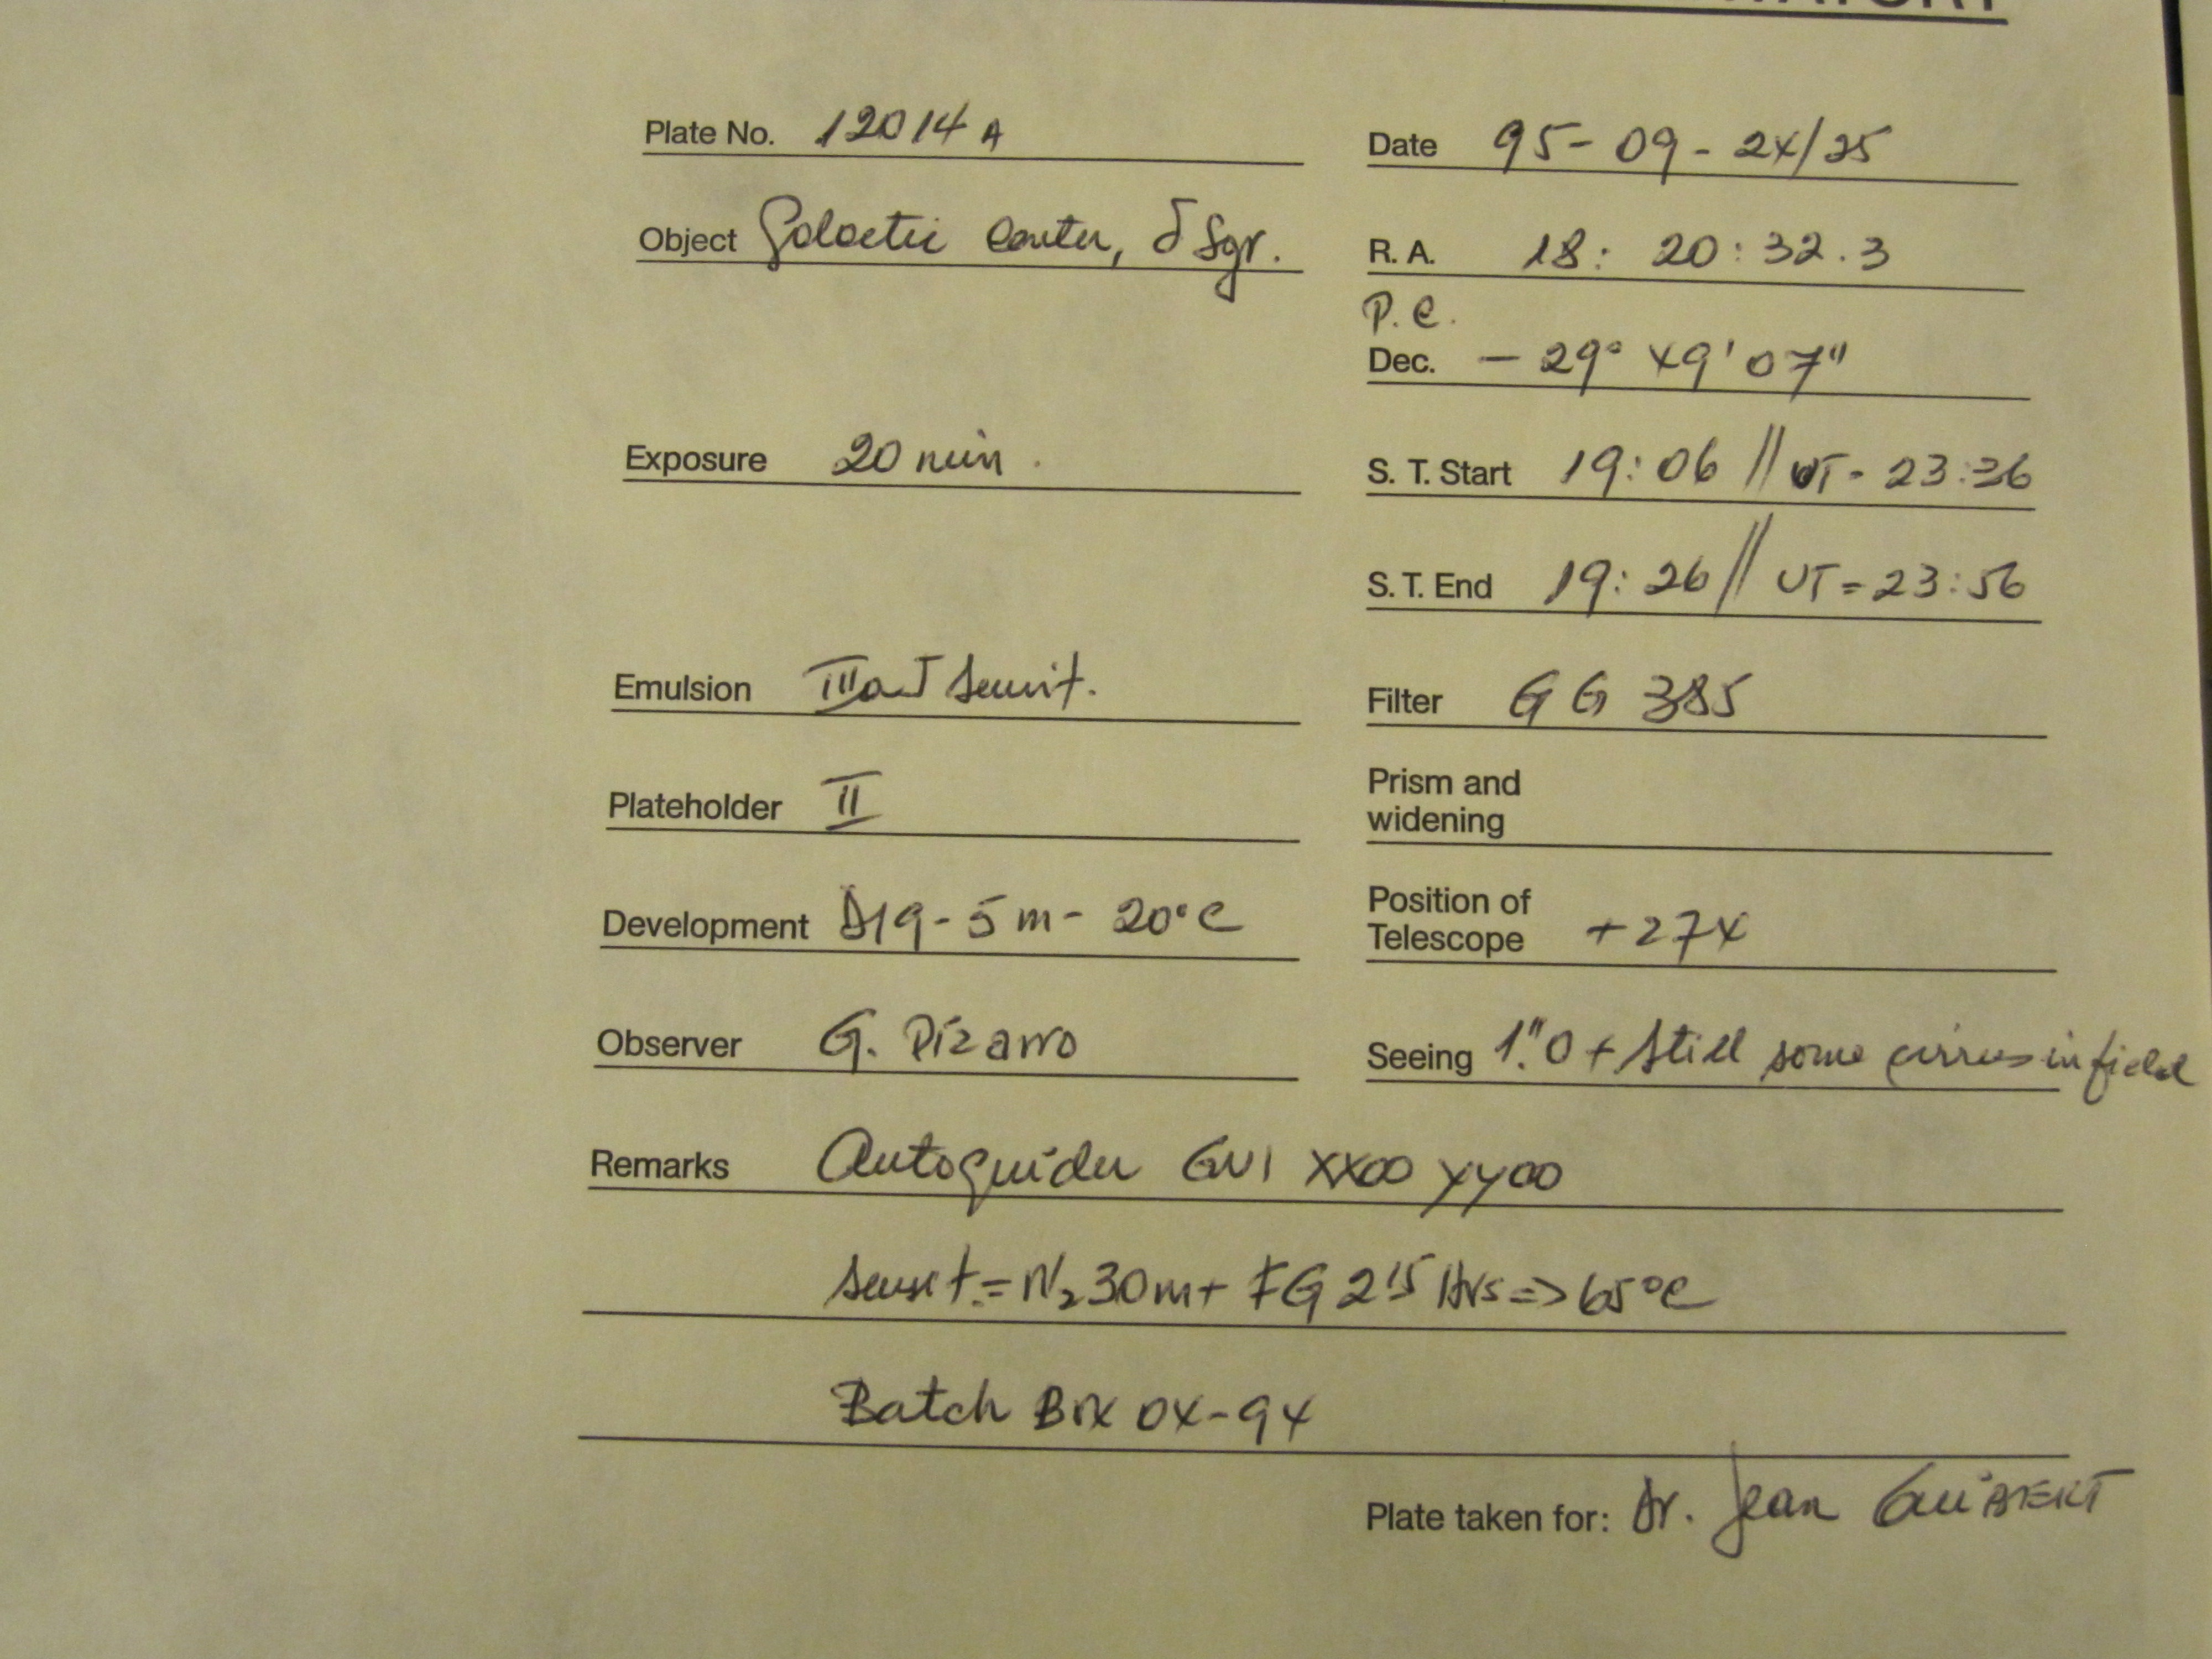 Plate No. 12014 A
Date 95-09-24/25
Object Galactic Center, δ Sgr.
R. A. 18: 20: 32.3
P.C.
Dec. - 29° 49' 07"
Exposure 20 min.
S. T. Start 19:06 // UT- 23:36
S. T. End 19:26 // UT=23:56
Emulsion IIIaJ Sensit.
Filter GG 385
Plateholder II
Prism and
widening
Development D19-5m- 20°C
Position of
Telescope +274
Observer G. Pizarro
Seeing 1".0 + Still some cirrus in field
Remarks Autoguider GV1 XX00 YY00
Sensit.=N₂30m+ FG 2¹⁵ Hrs=>65°C
Batch 04-94
Plate taken for: Dr. Jean GUIBERT